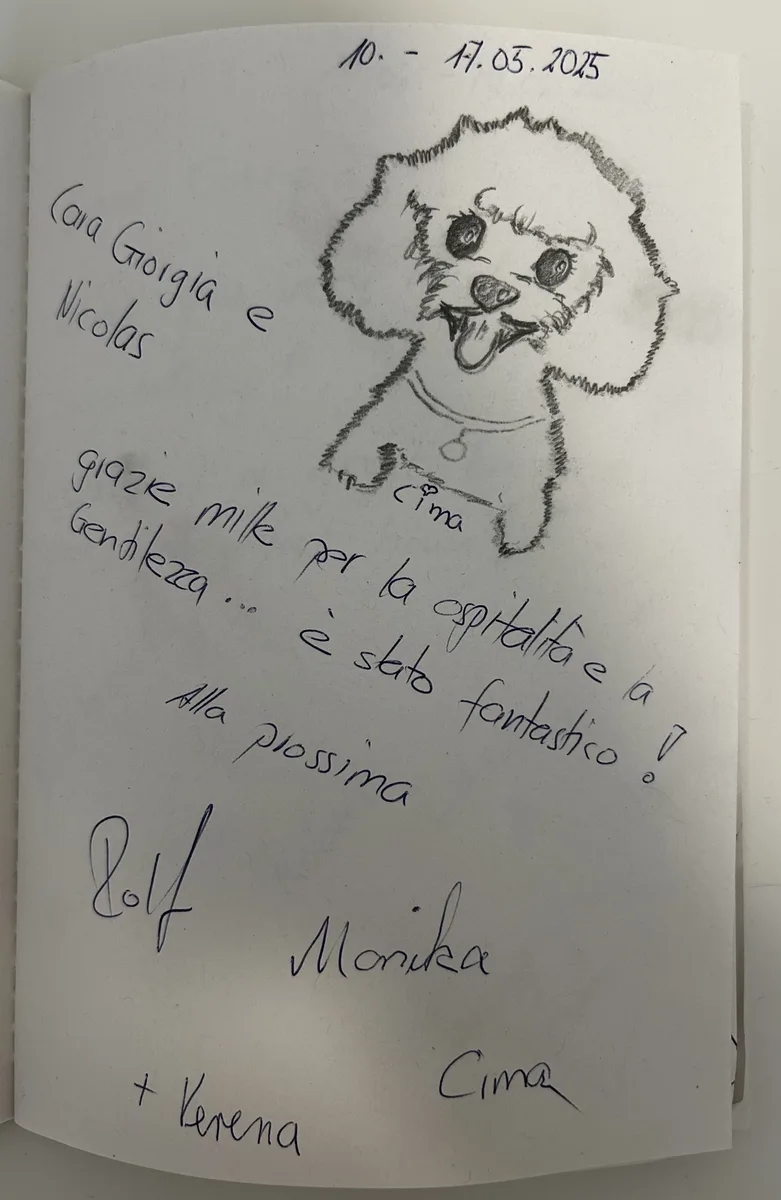 10. - 17.05.2025
Cara Giorgia e
Nicolas
Cima
grazie mille per la ospitalità e la
Gentilezza... è stato fantastico!
Alla prossima
Rolf
Monika
Cima
+ Verena